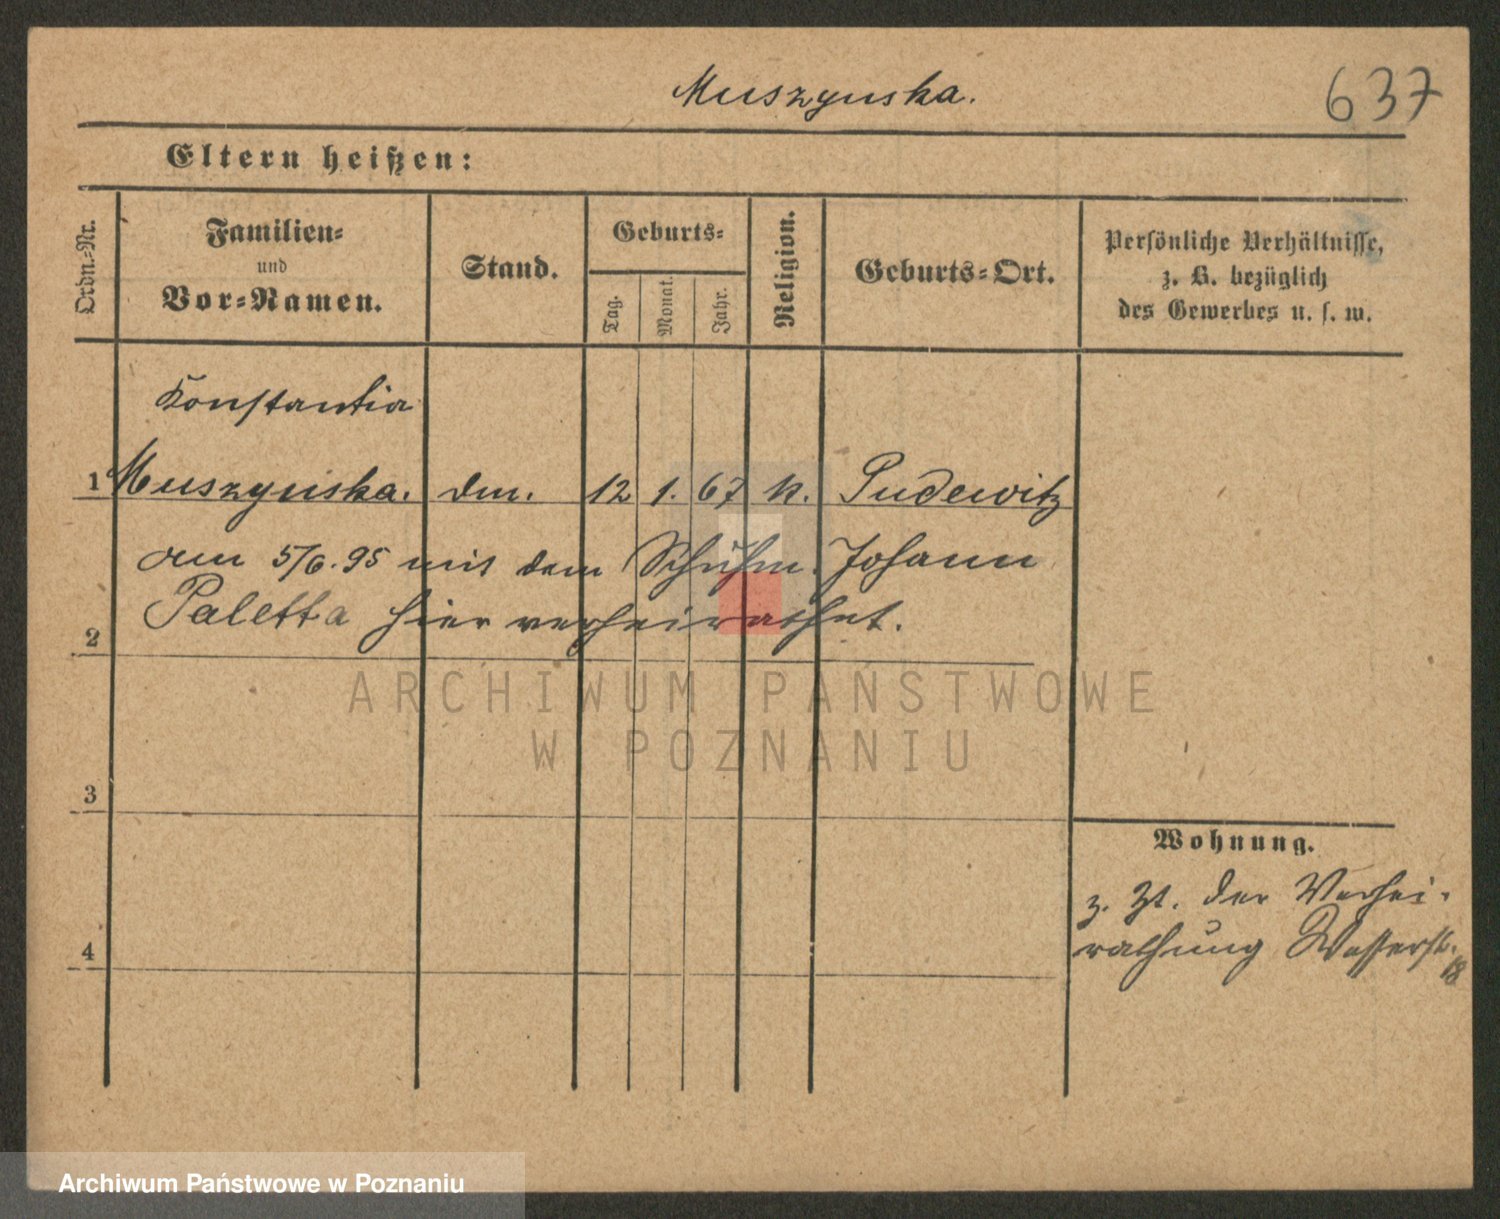 Muszynska.
637
Eltern heißen:
Ordn.-Nr.
Familien-
und
Vor-Namen.
Stand.
Geburts-
Tag.
Monat.
Jahr.
Religion.
Geburts-Ort.
Persönliche Verhältnisse,
z. B. bezüglich
des Gewerbes u. s. w.
Konstantia
1 Muszynska. 12 1. 67 k. Pudewitz
am 5/6.95 mit dem Schuhm. Johann
Paletta hier verheirathet.
2
3
Wohnung.
z. Zt. der Verhei-
rathung Wasserstr.
18
4
ARCHIWUM PAŃSTWOWE
W POZNANIU
Archiwum Państwowe w Poznaniu